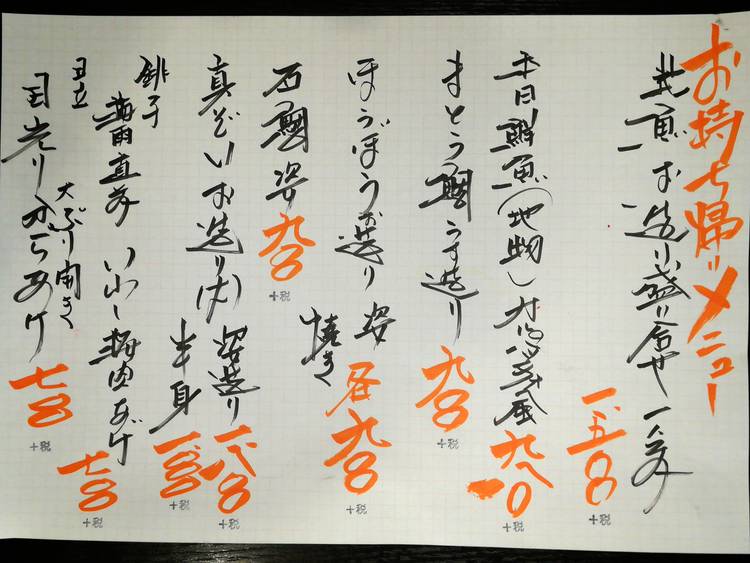 お持ち帰りメニュー
魚お造り小盛り合せ 一人前
一、五〇〇
+税
本日鮮魚(地物)カルパッチョ風 九八〇
+税
まとう鯛うす造り 九〇〇
+税
ほうぼうお造り 姿
焼き
各 九〇〇
+税
石鯛 姿 九〇〇
+税
真ぞいお造り(大) 姿造り 一、八〇〇
+税
半身 一、〇〇〇
+税
銚子
梅雨直前 いわし梅肉あげ 七〇〇
+税
日立
大ぶり開き
目光りからあげ 七〇〇
+税